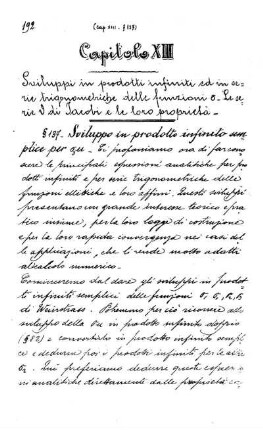 192 (Cap. XIII. - § 137)
Capitolo XIII
Sviluppi in prodotti infiniti ed in se-
rie trigonometriche delle funzioni σ. Le se-
rie ϑ di Jacobi e le loro proprietà. -
§ 137. - Sviluppo in prodotto infinito sem-
plice per σu - Ci proponiamo ora di far cono-
scere le principali espressioni analitiche per pro-
dotti infiniti e per serie trigonometriche delle
funzioni ellittiche e loro affini. Questi sviluppi
presentano un grande interesse teorico e pra-
tico insieme, per la loro legge di costruzione
e per la loro rapida convergenza nei casi del-
le applicazioni, che li rende molto adatti
al calcolo numerico.
Cominceremo dal dare gli sviluppi in prodot-
ti infiniti semplici delle funzioni
di Weierstrass. Potremmo perciò ricorrere allo
sviluppo della σu in prodotto infinito doppio
(§ 82) e convertirlo in prodotto infinito sempli-
ce e dedurne poi i prodotti infiniti per le altre
σ. Qui preferiamo dedurre queste espressio-
ni analitiche direttamente dalle proprietà